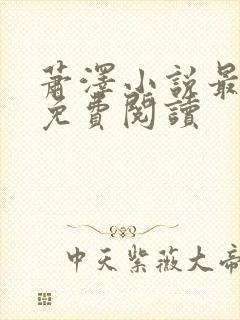 蕭澤小說最
免費閱讀
中天紫薇大帝